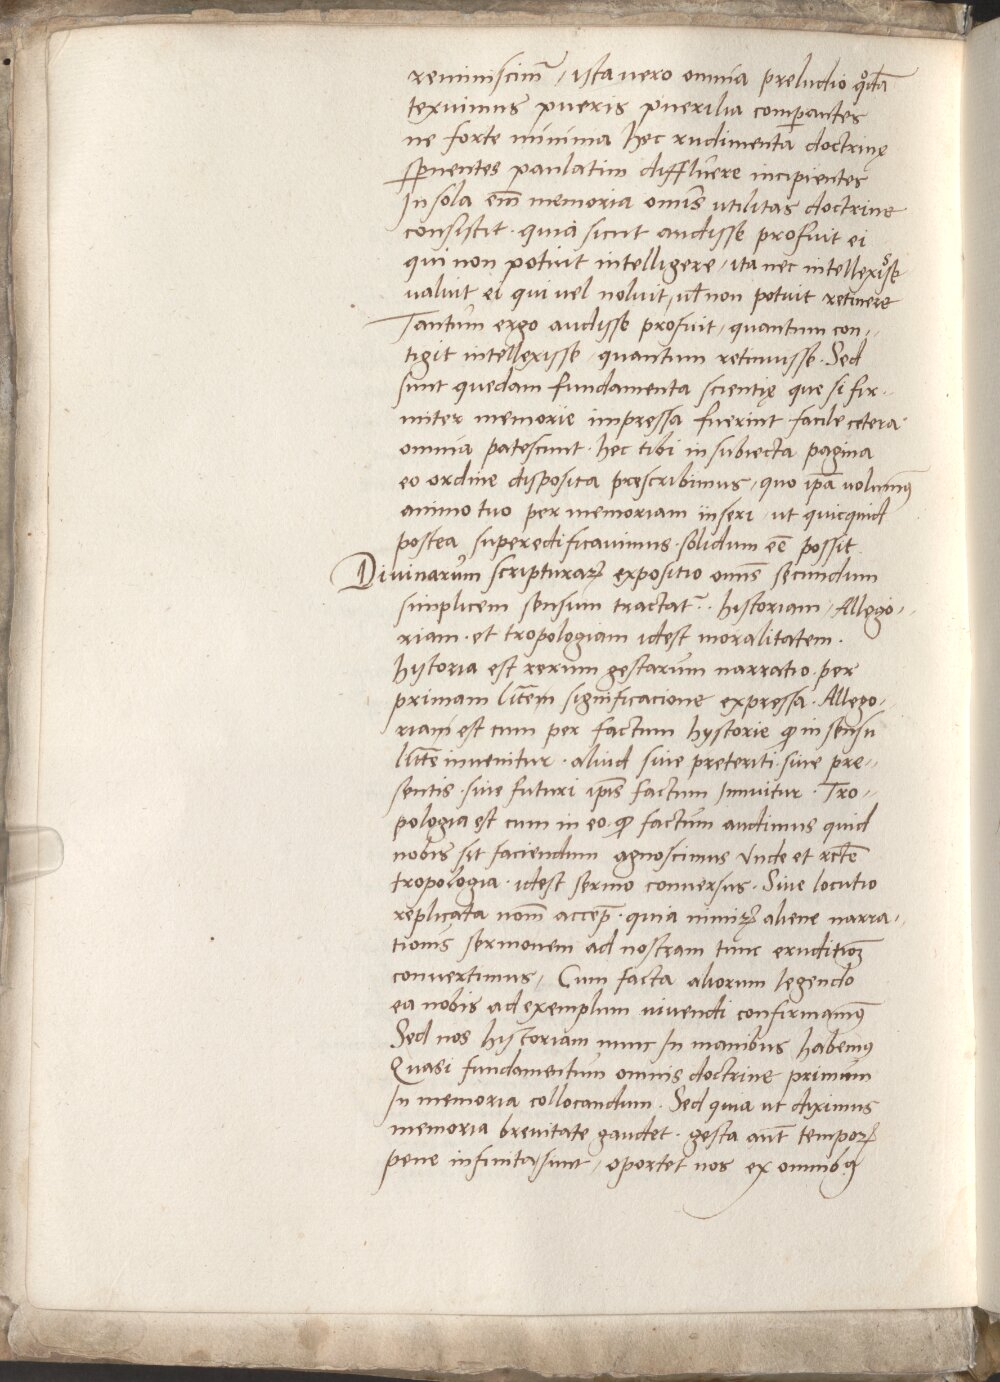 reminiscim̄ / ista uero omnia preludio qͦdā
texuimus pueris puerilia comꝑantes
ne forte minima hec rudimenta doctrinę
spuentes paulatim diffluere incipientes
In sola em̄ memoria omīs utilitas doctrine
consistit · quia sicut audisse profuit ei
qui non potuit intelligere / ita nec intellexisse
ualuit ei qui uel noluit, ul̄ non potuit retinere
Tantum ergo audisse profuit / quantum con //
tigit intellexisse / quantum retinuisse · Sed
sunt quedam fundamenta scientię que si fir //
miter memorie impressa fuerint facile cetera
omnia patescunt · hec tibi in subiecta pagina
eo ordine disposita prescribimus, quo ip̄a uolumꝰ
animo tuo per memoriam inseri / ut quicquid
postea superedificauimus · solidum eē possit
Diuinarum scripturaꝝ expositio omīs secundum
simplicem sensum tractat᷑ · historiam / Allego //
riam · et tropologiam idest moralitatem ·
hystoria est rerum gestarum narratio · per
primam lr̄am significacione expressa · Allego //
riam est cum per factum hystorie ꝙ in sensu
lr̄e inuenitur · aliud siue preteriti · siue pre //
sentis · siue futuri ip̄is factum Innuitur · Tro //
pologia est cum in eo · ꝙ factum audimus quid
nobis sit faciendum agnoscimus Vnde et rct̄e
tropologia · idest sermo conuersus · Siue locutio
replicata nom̄ accep̄ · quia nimiꝝ aliene narra //
tionis sermonem ad nostram tunc eruditiōꝫ
conuertimus / Cum facta aliorum legendo
ea nobis ad exemplum uiuendi confirmamꝰ
Sed nos hystoriam nunc In manibus habemꝰ
Quasi fundamentum omnis doctrine primum
In memoria collocandum · Sed quia ut diximus
memoria breuitate gaudet · gesta aūt tempoꝝ
pene infinita sunt / oportet nos ex omnibꝰ